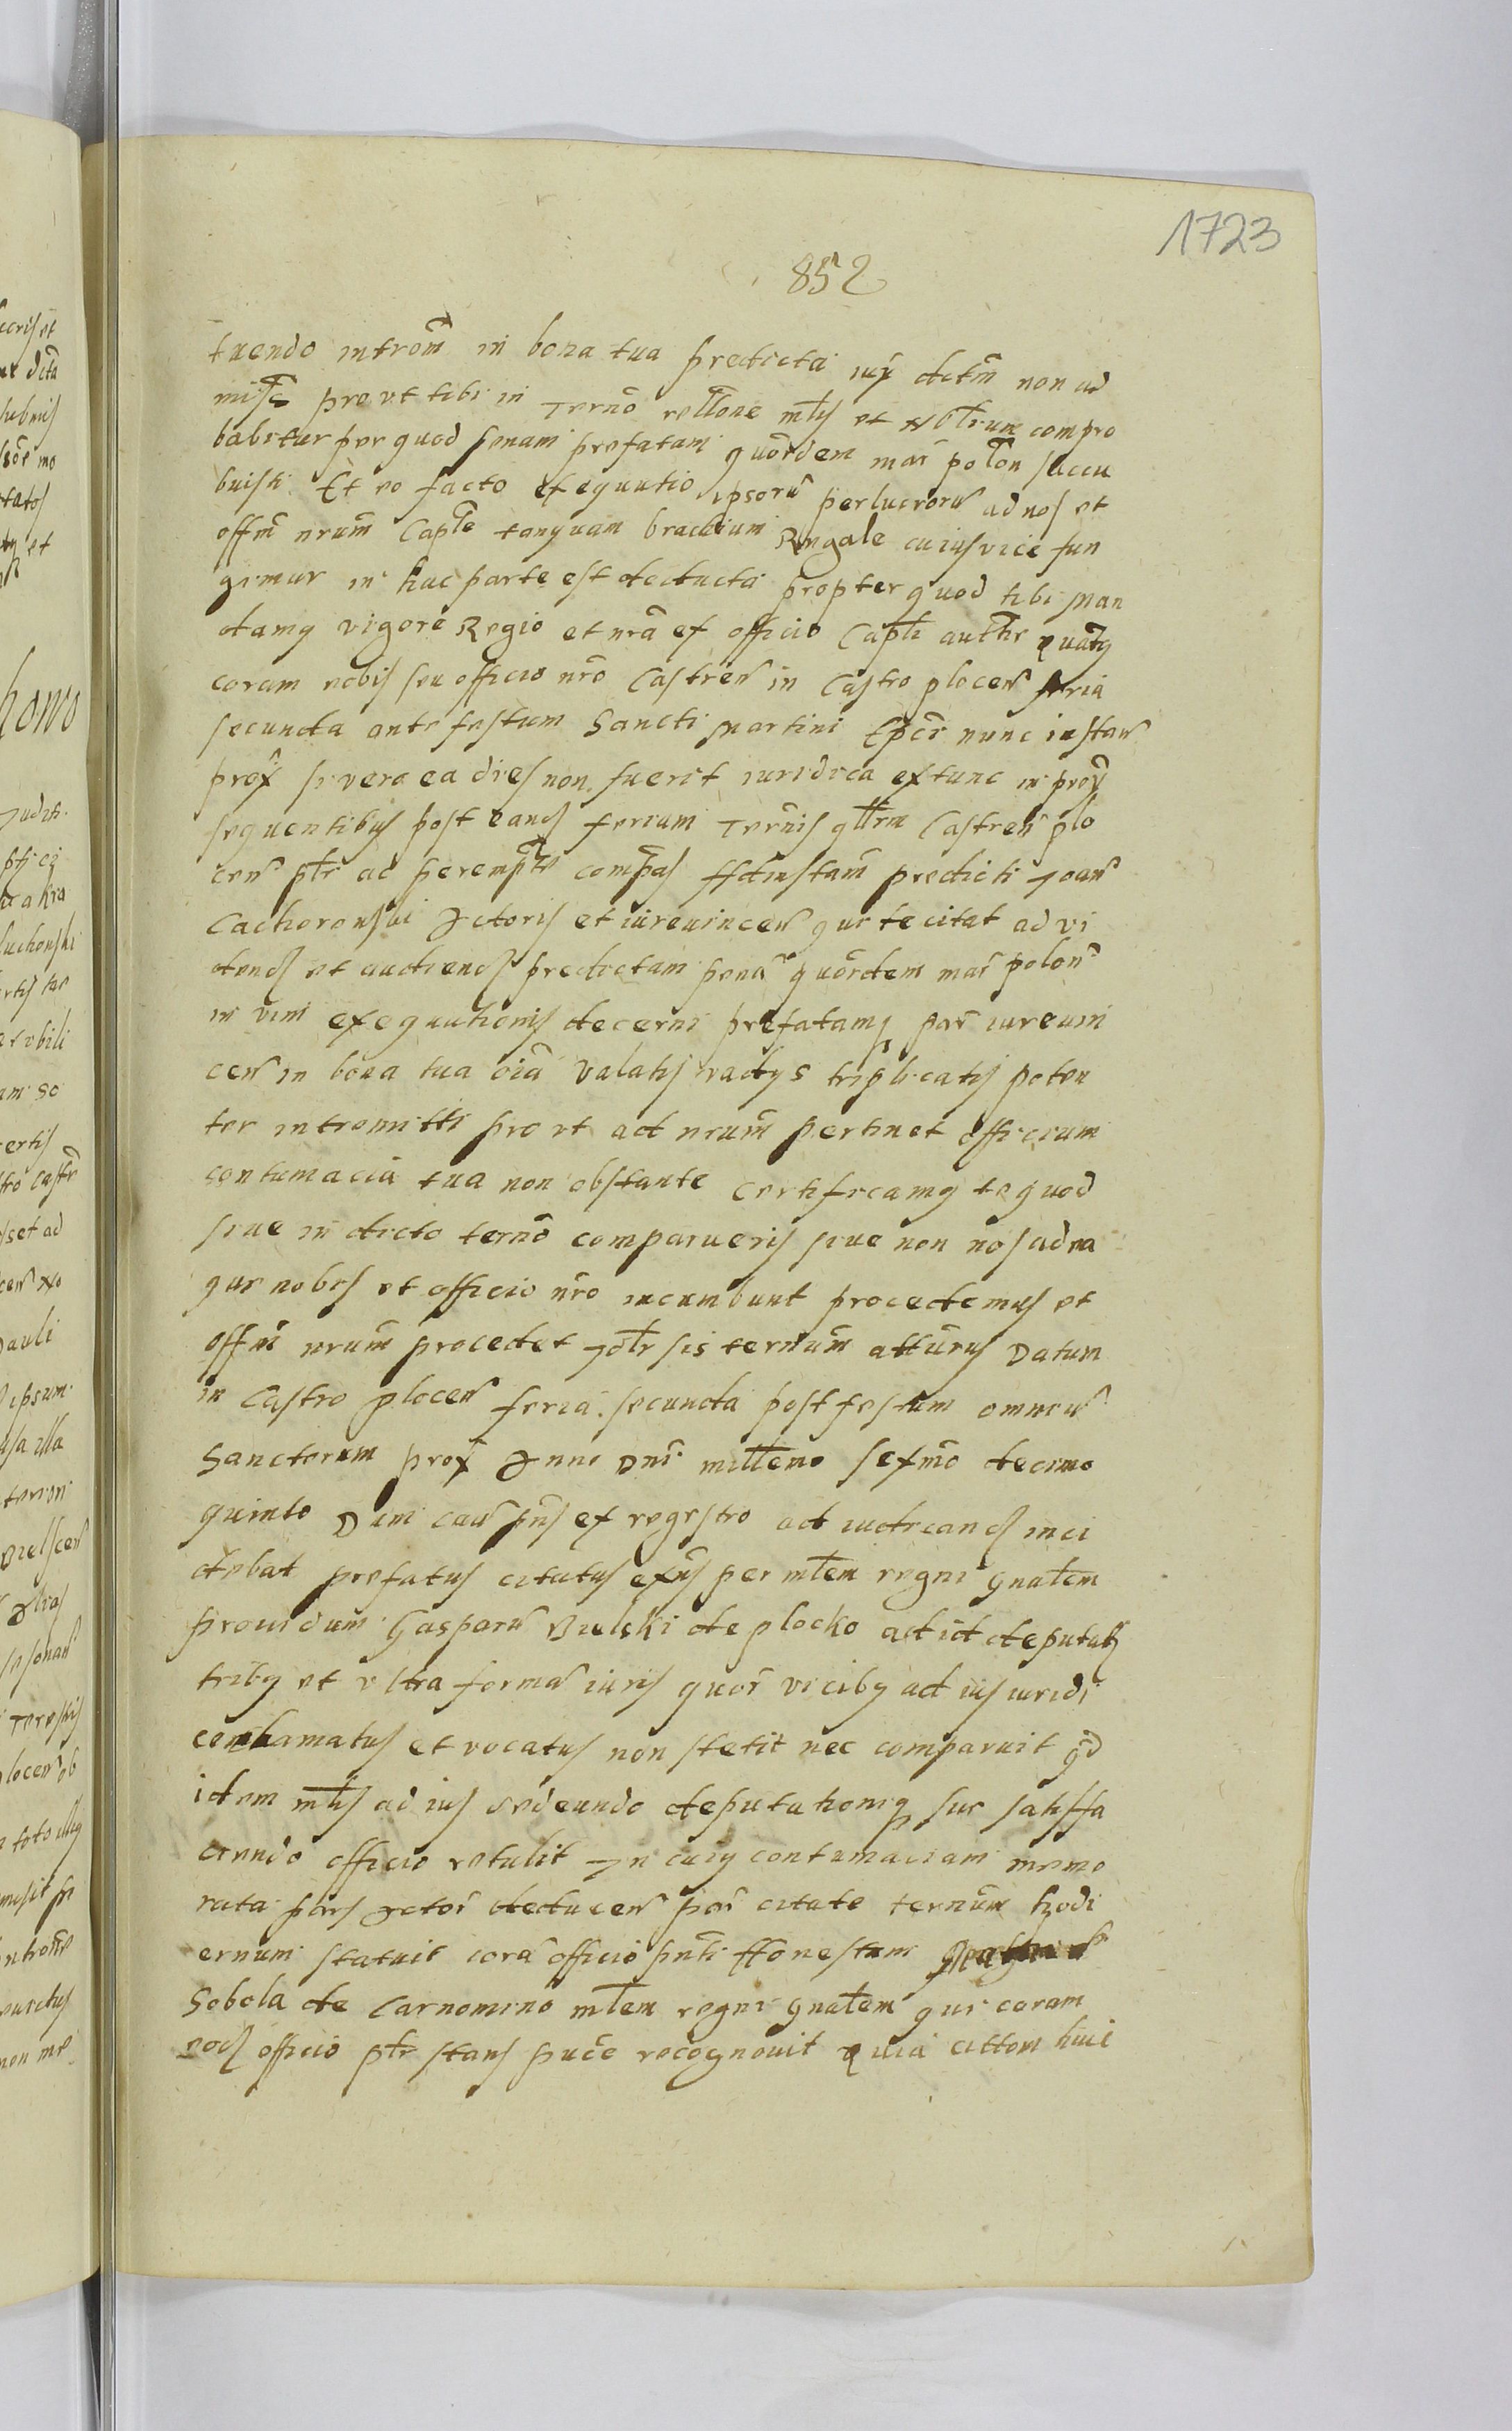 1723
852
tuendo introm̄ in bona tua predicta iux dictm̄ non ad
misi prout tibi in Termō rellone mlis et Nblium compro
babitur per quod penam prefatam quordem mar polon succu
buisti Et eo facto exequutio ipsoru perlucroru ad nos et
offm̄ nrum̄ Caple tanquam brachium Regale cuius vice fun
gimur in hac parte est deducta propter quod tibi Man
damq vigore Regio et nrā ex officio Capli authte quatq
coram nobis seu officio nrō Castren in Castro plocen feria
secunda ante festum Sancti Martini Epci nunc instan
prox si vero ea dies non fuerit iuridica extunc in prox
sequentibus post eand feriam Termis qllrm Castren plo
cen ptr ad perempte compas ad instam̄ predicti Joan
Cachorowski Actoris et iureuincen qui te citat ad vi
dend et audiend predictam penā quordem mar polon
in vim exequutionis decerni prefatamq par iureuin
cen in bona tua oīa Valatis vadys triplicatis poten
ter intromitti prout ad nrum̄ pertinet officium
contumacia tua non obstante Certificamq te quod
siue in dicto termō comparueris siue non nos ad ea
que nobis et officio nrō incumbunt procedemus et
offm̄ nrum̄ procedet Jgtr sis termum̄ atturus Datum
in Castro plocen feria secunda post festum omniu
Sanctorum prox Anno Dni milleno sexmō decimo
quinto Dum cau pns ex regestro ad iudicand inci
debat prefatus citatus exns per mlem regni gnalem
prouidum Gasparu Bielski de plocko ad id deputat
tribq et vltra formā iuris quor vicibq ad ius iuridi
conclamatus et vocatus non stetit nec comparuit qd
idem mlis ad ius redeundo deputationiq sue satisfa
ciendo officio retulit In cuiq contumaciam memo
rata pars Actor deducen par citate termum hodi
ernum statuit corā officio pnti Honestum
Sobola de Carnomino mlem regni gnalem qui coram
eod officio ptr stans puce recognouit Quia cittem huic